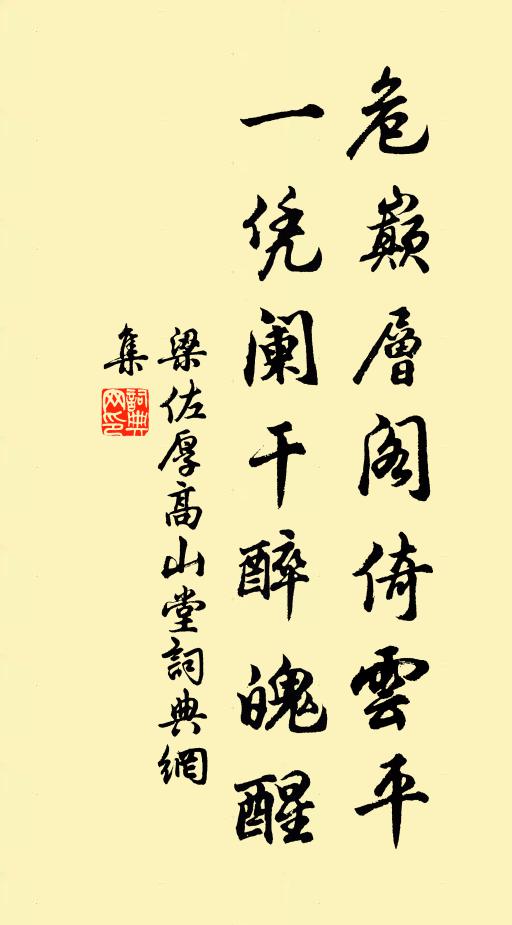 危巔層阁倚雲平
一凭阑干醉魄醒
梁佐厚高山堂詞典網
集
詞典
网印